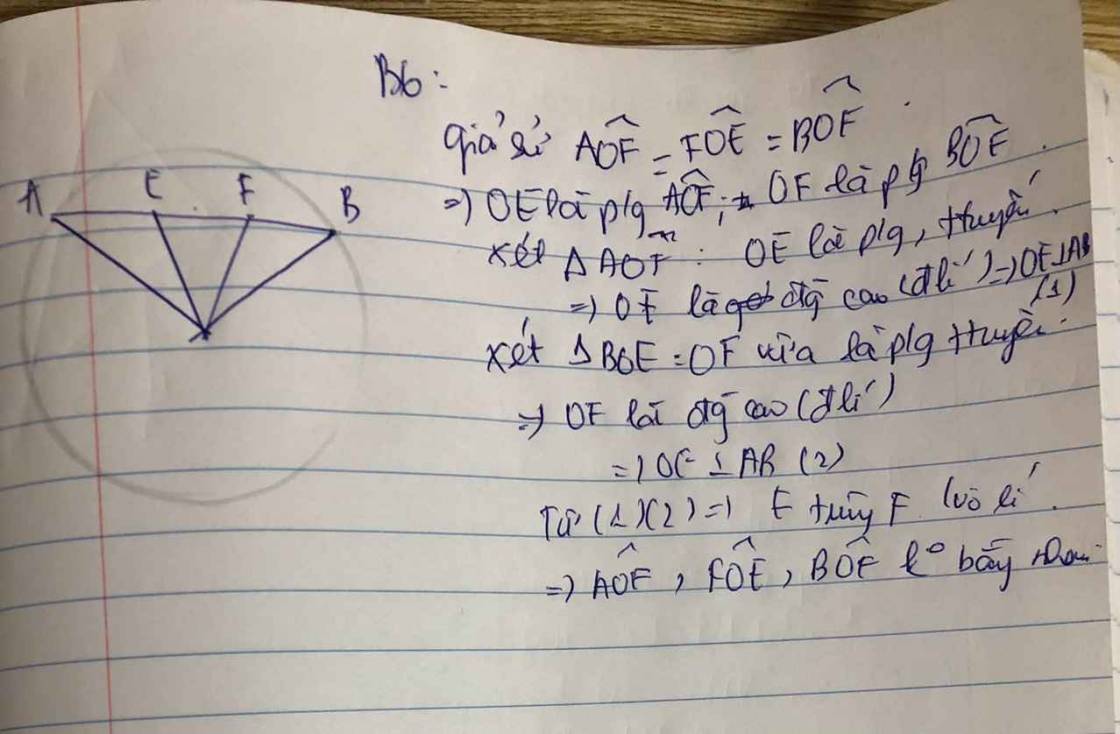 B6:
Giả sử AOF = FOE = BOF
=> OE là p/g AOF; OF là p/g BOE.
xét △AOF: OE là p/g, ttuyến.
=> OE là đg cao (đlí) => OE⊥AB
(1)
xét △BOE: OF vừa là p/g ttuyến.
=> OF là đg cao (đlí)
=> OF ⊥ AB (2)
Từ (1)(2) => E trùng F (vô lí).
=> AOF, FOE, BOF k° bằng nhau
A E F B